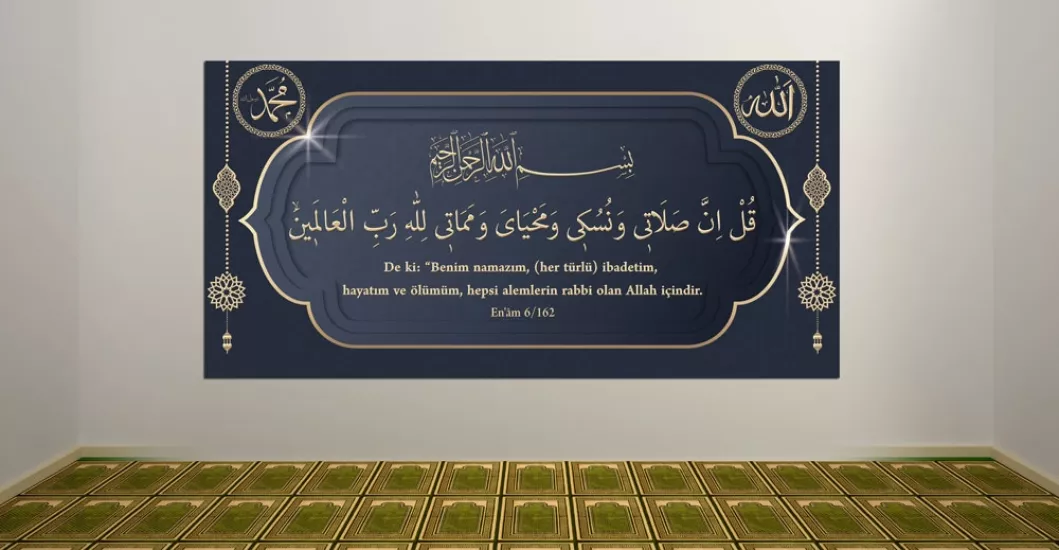 الله
محمد
بسم الله الرحمن الرحيم
قُلْ اِنَّ صَلَاتٖى وَنُسُكٖى وَمَحْيَاىَ وَمَمَاتٖى لِلّٰهِ رَبِّ الْعَالَمٖينَ
De ki: “Benim namazım, (her türlü) ibadetim,
hayatım ve ölümüm, hepsi alemlerin rabbi olan Allah içindir.
En'âm 6/162